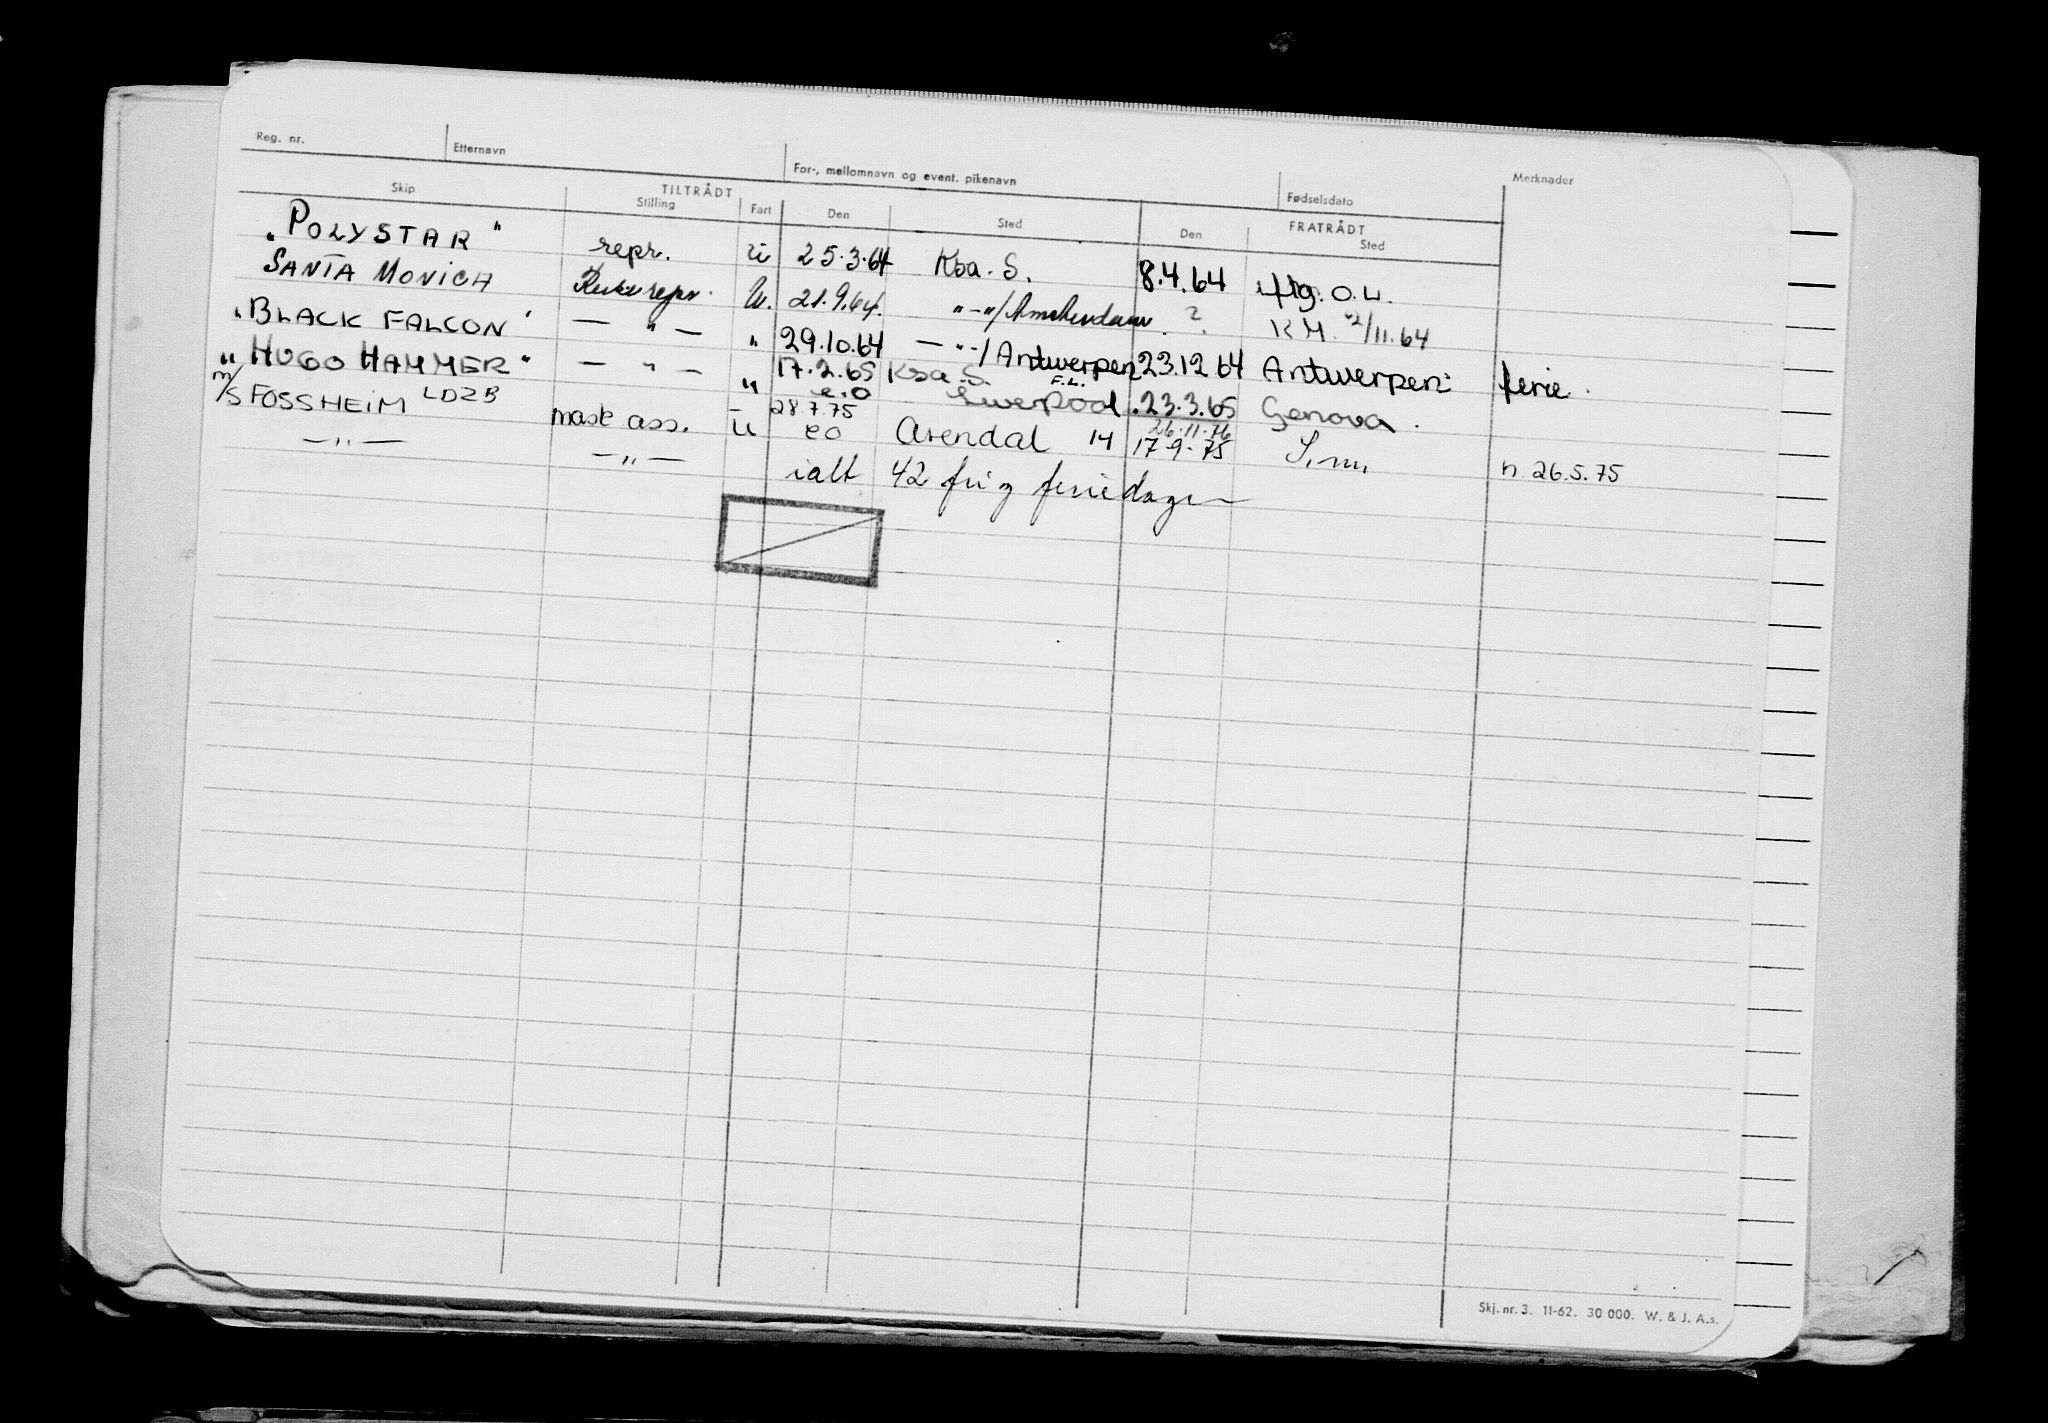 Reg. nr. Etternavn For-, mellomnavn og event. pikenavn Fødselsdato Merknader
TILTRÅDT FRATRÅDT
Skip Stilling Fart Den Sted Den Sted
"POLYSTAR" repr. u 25.3.64 Ksa. S. 8.4.64 O.L.
SANTA MONICA repr. U. 21.9.64. " - " / Amsterdam ? K.M. 2/11.64
"BLACK FALCON" — " — " 29.10.64 — " - / Antwerpen 23.12 64 Antwerpen ferie.
"HUGO HAMMER" — " — " 17.2.65 Ksa. S. F.L. Liverpool 23.3.65 Genova.
m/s FOSSHEIM LDZB mask ass. u 28.7.75 eo Arendal 14 26.11.76 17.9.75 n 26.5.75
— " — — " — ialt 42 fri og feriedager
Skj. nr. 3. 11-62. 30 000. W. & J. A.s.